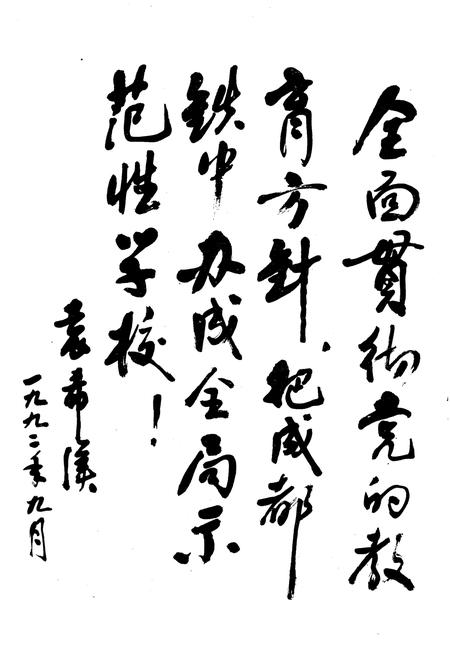 全面贯彻党的教
育方针，把成都
铁中办成全局示
范性学校！
袁希溪
一九九二年九月